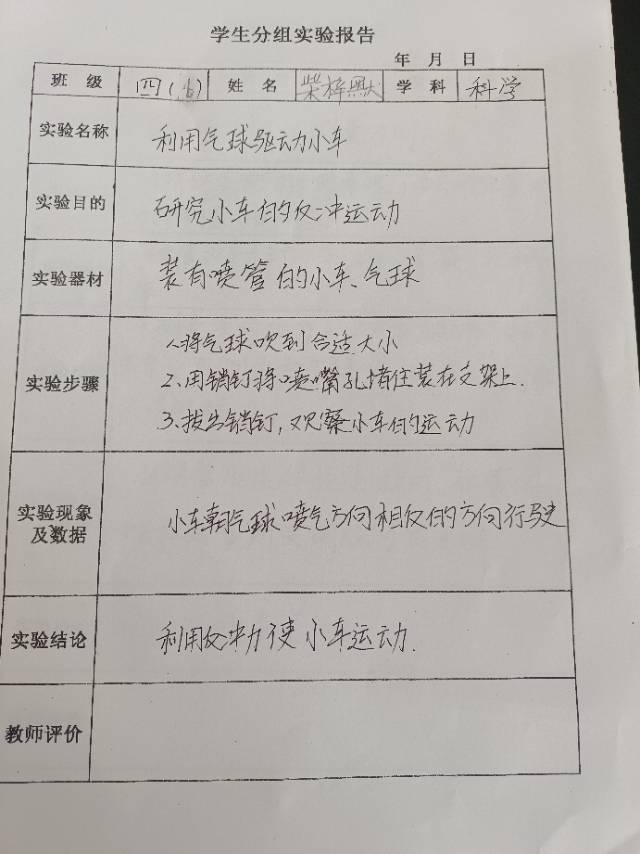 学生分组实验报告
年 月 日
班 级 四(6) 姓 名 柴梓默 学 科 科学
实验名称 利用气球驱动小车
实验目的 研究小车的反冲运动
实验器材 装有喷管的小车、气球
1、将气球吹到合适大小
实验步骤 2、用销钉将喷嘴孔堵住装在支架上.
3、拔出销钉,观察小车的运动
实验现象
及数据 小车朝气球喷气方向相反的方向行驶
实验结论 利用反冲力使小车运动.
教师评价